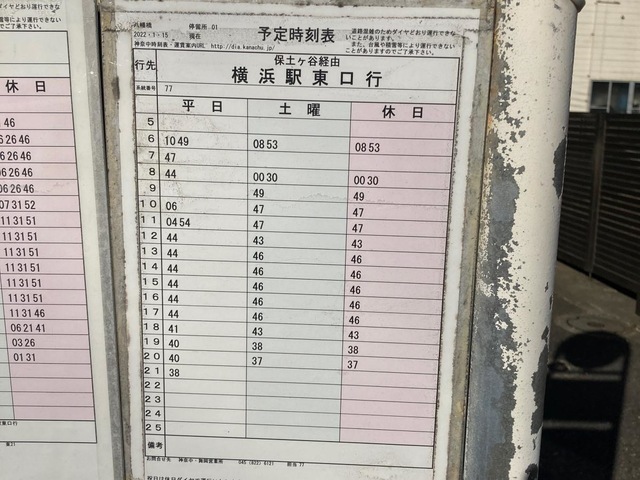 きない
等により運行できない
でご了承ください。
休 日
46
26 46
26 46
26 46
06 26 46
07 31 52
11 31 51
11 31 51
11 31 51
11 31 51
11 31 51
11 31 51
11 31 46
06 21 41
03 26
01 31
東口行
停留所 01
2022-
-15
現在
予定時刻表
道路混雑のためダイヤどおり運行できな
いことがあります。
また、台風や積雪等により運行できない
ことがありますのでご了承ください。
神奈中時刻表・運賃案内URL http://dia.kanachu.jp/
行先
保土ヶ谷経由
横浜駅東口行
系統番号 77
平 日 土 曜 休 日
5
6 10 49 08 53 08 53
7 47
8 44 00 30 00 30
9 49 49
10 06 47 47
11 04 54 47 47
12 44 43 43
13 44 46 46
14 44 46 46
15 44 46 46
16 44 46 46
17 44 46 46
18 41 43 43
19 40 38 38
20 40 37 37
21 38
22
23
24
25
備考
お問合せ先 神奈中・舞岡営業所 045(822) 6121 担当 77